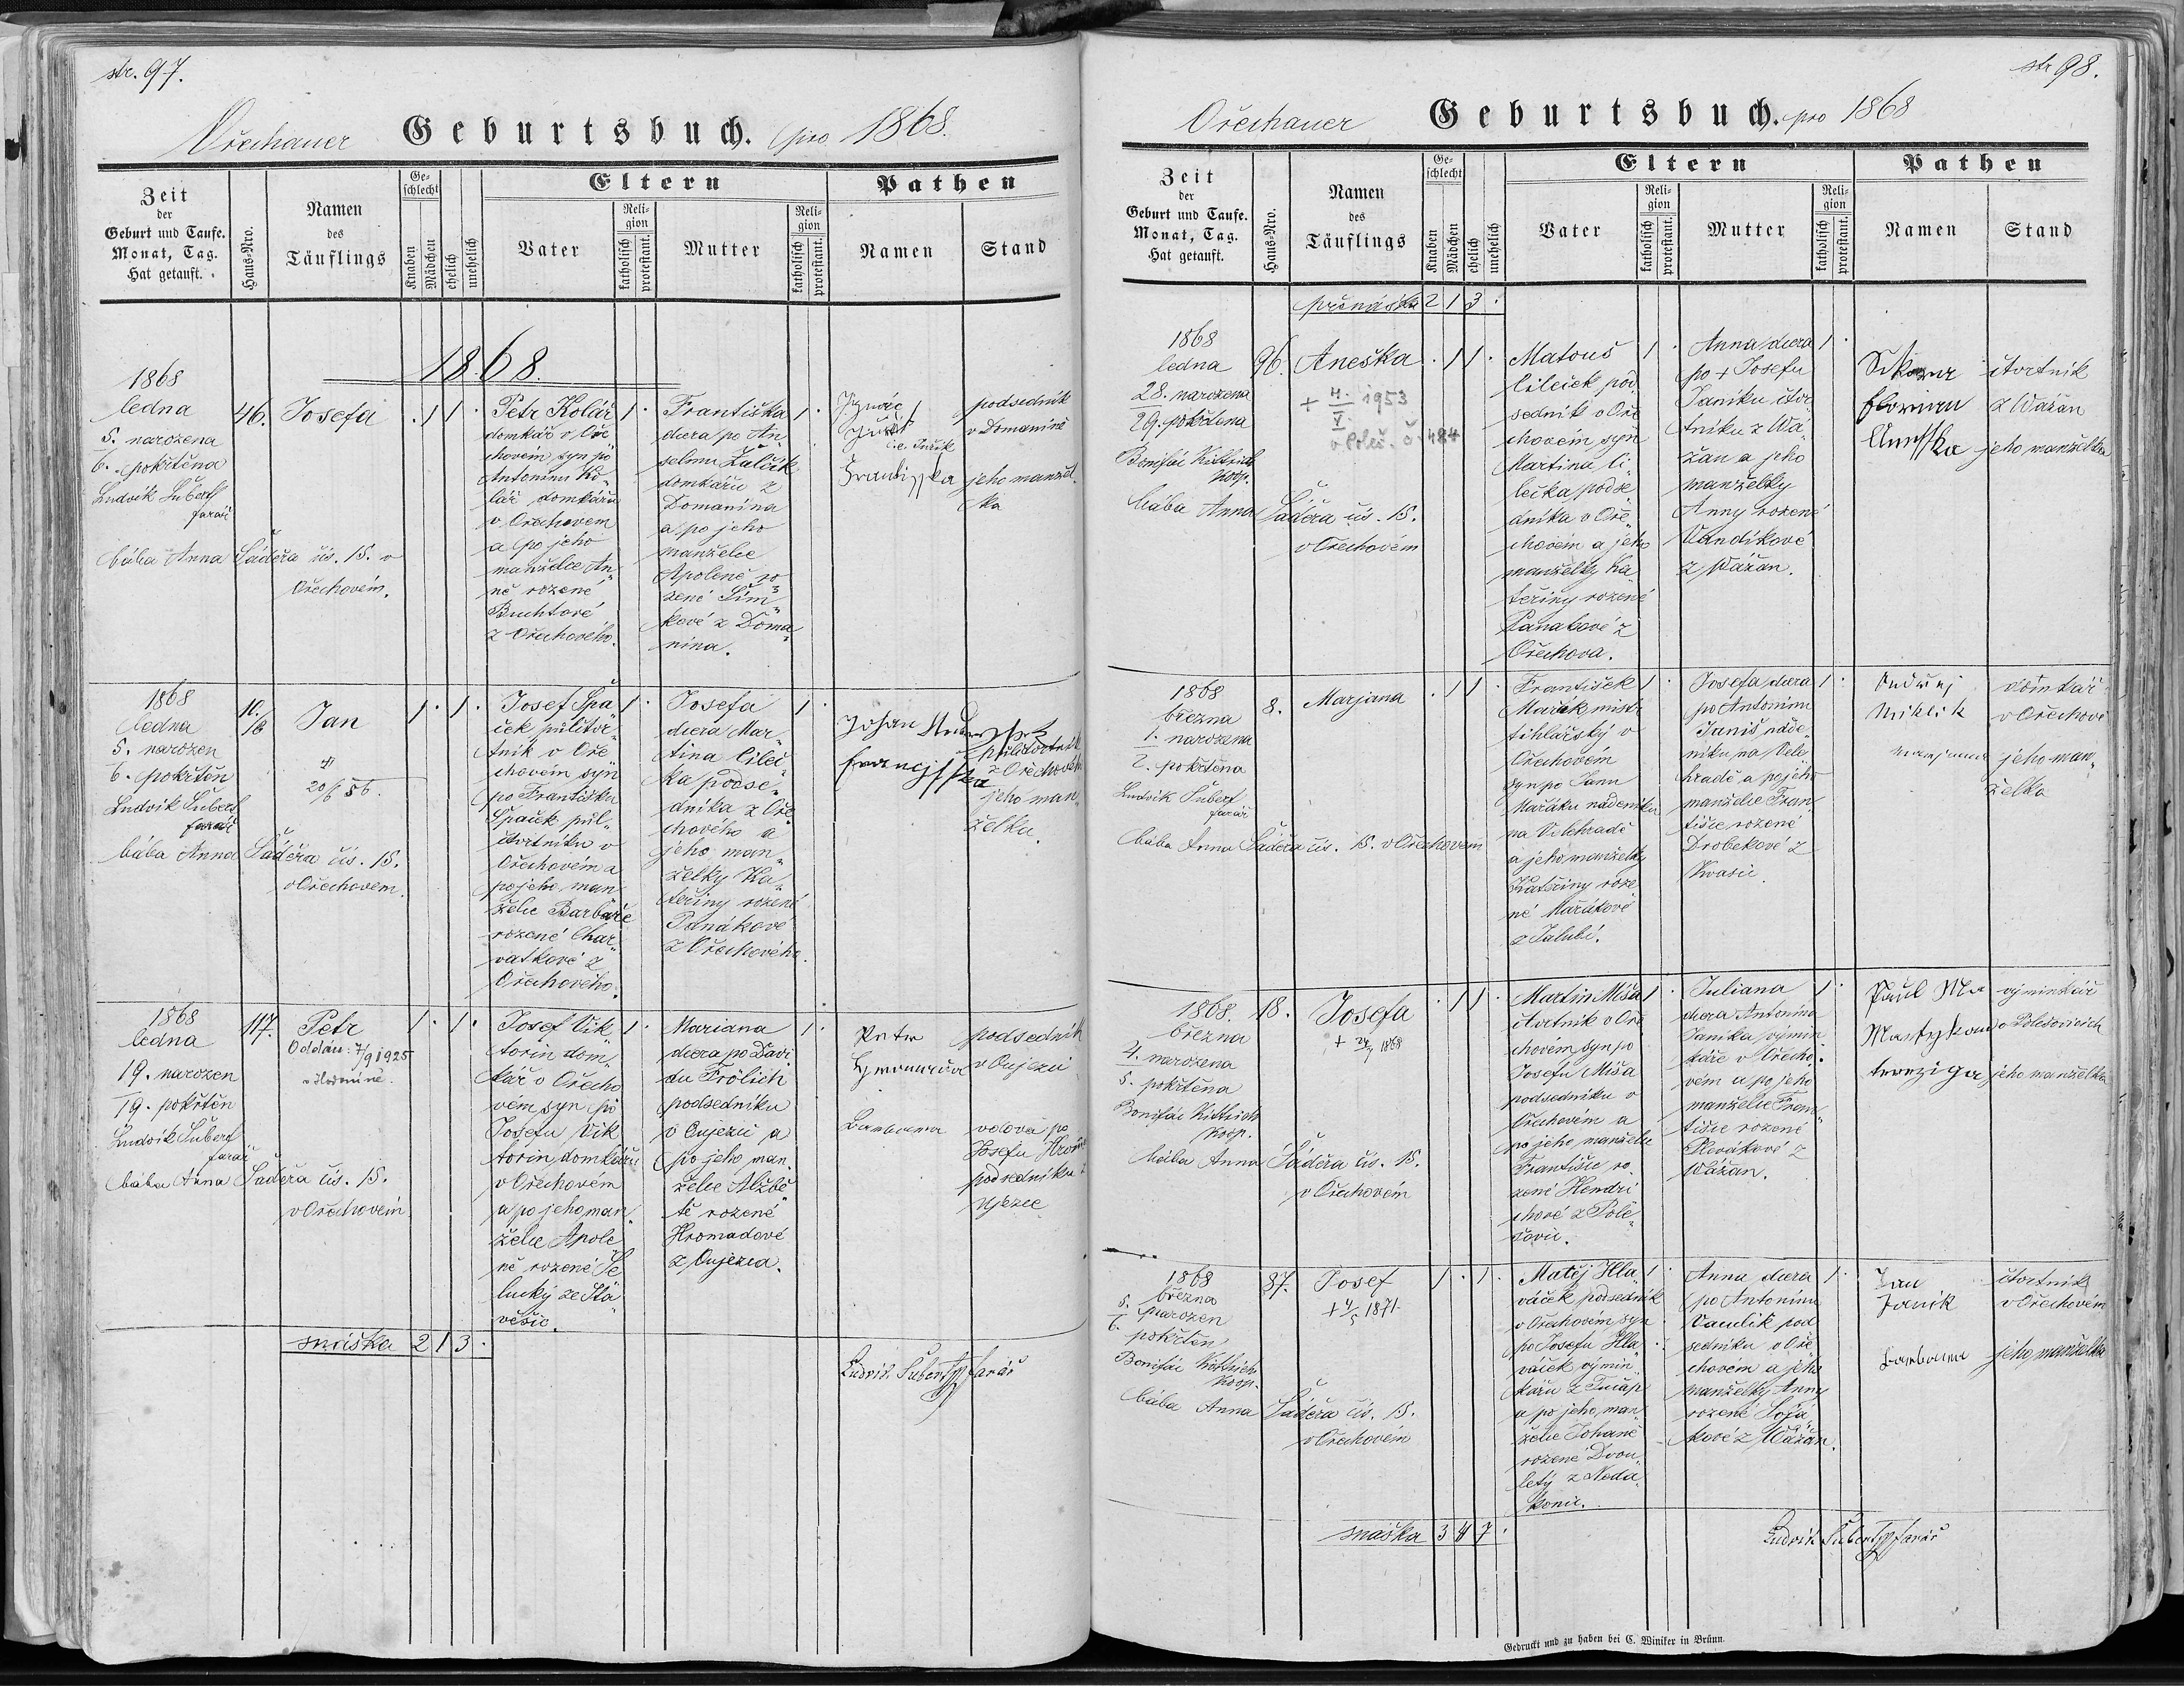 str. 97.
Ořechauer Geburtsbuch. pro 1868.
Zeit
der
Geburt und Taufe.
Monat, Tag.
Hat getauft.
Haus-Nro.
Namen
des
Täuflings
Ge-
schlecht
Knaben
Mädchen
ehelich
unehelich
Eltern
Vater
Reli-
gion
katholisch
protestant.
Mutter
Reli-
gion
katholisch
protestant.
Pathen
Namen
Stand
1868.
1868
ledna
5. narozena
6. pokřtěna
Ludvik Šubert
farář
bába Anna Šáděra čís. 15. v
Ořechovém.
46.
Josefa
. 1 1 .
Petr Kolář
domkář v Oře
chovém syn po
Antonínu Ko
lář domkářu
v Ořechovem
a po jeho
manželce An
ně rozené
Buchtové
z Ořechového.
1 .
Františka
dcera po An
selmu Žalčík
domkářu z
Domanína
a po jeho
manželce
Apoleně ro
zené Šim
kové z Doma
nína.
1 .
Františka
podsedník
v Domaníně
jeho manžel
ka
1868
ledna
5. narozen
6. pokřtěn
Ludvik Šubert
farář
bába Anna Šáděra čís. 15.
v Ořechovem.
10/16
Jan
20/6 56.
1 . 1 .
Josef Špa
ček půlčtvr
tník v Oře
chovém syn
po Františku
Špaček půl
čtvrtníku v
Ořechovém a
po jeho man
želce Barbaře
rozené Char
vatkové z
Ořechového.
1 .
Josefa
dcera Mar
tina Cileč
ka podse
dníka z Oře
chového a
jeho man
želky Ka
teřiny rozené
Panákové
z Ořechového.
1 .
Johan
půlčtvrtník
z Ořechového
jeho man
želka.
1868
ledna
19. narozen
19. pokřtěn
Ludvik Šubert
farář
bába Anna Šáděra čís. 15.
v Ořechovém
117.
Petr
Oddán: 7/9 1925
1 . 1 .
Josef Vik
torin dom
kář v Ořecho
vém syn po
Josefu Vik
torin domkářu
v Ořechovém
a po jeho man
želce Apole
ně rozené Še
lucký ze Stá
věšic.
1 .
Mariana
dcera po Davi
du Frölich
podsedníku
v Oujezci a
po jeho man
želce Alžbě
tě rozené
Hromadové
z Oujezca.
1 .
Petr
Hromada
podsedník
v Oujezci
Barbora
vdova po
Josefu
podsedníku z
Ujezce
snůška 2 1 3 .
Ludvik Šubert farář
str 98.
Ořechauer Geburtsbuch. pro 1868
Zeit
der
Geburt und Taufe.
Monat, Tag.
Hat getauft.
Haus-Nro.
Namen
des
Täuflings
Ge-
schlecht
Knaben
Mädchen
ehelich
unehelich
Eltern
Vater
Reli-
gion
katholisch
protestant.
Mutter
Reli-
gion
katholisch
protestant.
Pathen
Namen
Stand
přenáška 2 1 3 .
1868
ledna
28. narozena
29. pokřtěna
Bonifác Kittrich
koop.
bába Anna Šáděra čís. 15.
v Ořechovém
96.
Aneška
+ 4. 1953
V
č. 484
. 1 1 .
Matouš
Cilček pod
sedník v Oře
chovém syn
Martina Ci
lečka podse
dníka v Oře
chovém a jeho
manželky Ka
teřiny rozené
Panakové z
Ořechova.
1 .
Anna dcera
po + Josefu
Janíku čtvr
tníku z Wá
žan a jeho
manželky
Anny rozené
Vandíkové
z Wážan.
1 .
Florian
Aneška
čtvrtník
z Wážan
jeho manželka
1868
března
1. narozena
2. pokřtěna
Ludvik Šubert
farář
bába Anna Šáděra čís. 15. v Ořechovem
8.
Marjana
. 1 1 .
František
Mařák mistr
tihlářský v
Ořechovém
syn po Janu
Mařáku nádeníku
na Velehradě
a jeho manželky
Kateřiny roze
né Mařákové
z Jalubí.
1 .
Josefa dcera
po Antonínu
Janiš náde
níku na Vele
hradě a po jeho
manželce Fran
tišce rozené
Drobekové z
Kvasic.
1 .
Andrej
Miklik
Marjana
domkář
v Ořechově
jeho man
želka
1868.
března
4. narozena
5. pokřtěna
Bonifác Kittrich
koop.
bába Anna Šáděra čís. 15.
v Ořechovém
18.
Josefa
+ 24/7 1868
. 1 1 .
Martin Míša
čtvrtník v Oře
chovém syn po
Josefu Míša
podsedníku v
Ořechovém a
po jeho manželce
Františce ro
zené Hendri
chové z Pole
šovic.
1 .
Juliana
dcera Antonína
Janíka výmin
káře v Ořecho
vém a po jeho
manželce Fran
tišce rozené
Plevákové z
Wážan.
1 .
Paul
výminkář
v Polešovicích
jeho manželka
1868
března
5. narozen
6. pokřtěn
Bonifác Kittrich
koop.
bába Anna Šáděra čís. 15.
v Ořechovém
87.
Josef
+ 4/5 1871
1 . 1 .
Matěj Hla
váček podsedník
v Ořechovém syn
po Josefu Hla
váček výmin
kářu z Tučap
a po jeho man
želce Johaně
rozené Dvou
letý z Neda
konic.
1 .
Anna dcera
po Antonínu
Vaculík pod
sedníku v Oře
chovém a jeho
manželky Anny
rozené
kové z Wážan.
1 .
Jan
Janik
Barbora
čtvrtník
v Ořechovém
jeho manželka
snáška 3 4 7 .
Ludvik Šubert farář
Gedruckt und zu haben bei C. Winiker in Brünn.